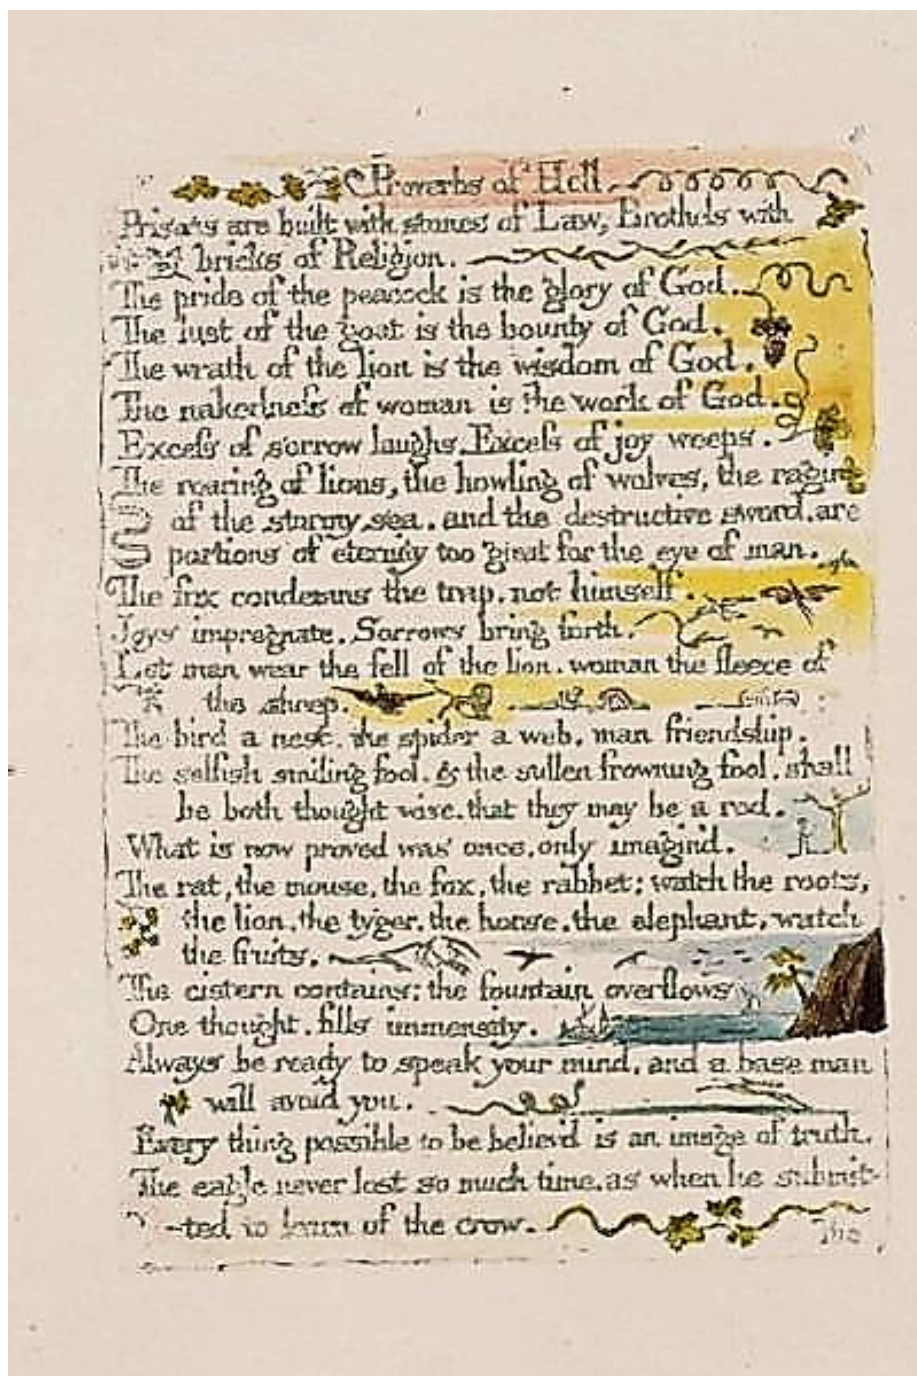 Proverbs of Hell
Prisons are built with stones of Law, Brothels with
bricks of Religion.
The pride of the peacock is the glory of God.
The lust of the goat is the bounty of God.
The wrath of the lion is the wisdom of God.
The nakedneſs of woman is the work of God.
Exceſs of sorrow laughs. Exceſs of joy weeps.
The roaring of lions, the howling of wolves, the raging
of the stormy sea. and the destructive sword. are
portions of eternity too great for the eye of man.
The fox condemns the trap. not himself.
Joys impregnate. Sorrows bring forth.
Let man wear the fell of the lion. woman the fleece of
the sheep.
The bird a nest. the spider a web. man friendship.
The selfish smiling fool. & the sullen frowning fool. shall
be both thought wise. that they may be a rod.
What is now proved was once, only imagin'd.
The rat, the mouse, the fox, the rabbet; watch the roots,
the lion. the tyger. the horse. the elephant, watch
the fruits.
The cistern contains; the fountain overflows
One thought. fills immensity.
Always be ready to speak your mind, and a base man
will avoid you.
Every thing possible to be believ'd is an image of truth.
The eagle never lost so much time. as when he submit-
-ted to learn of the crow.
The